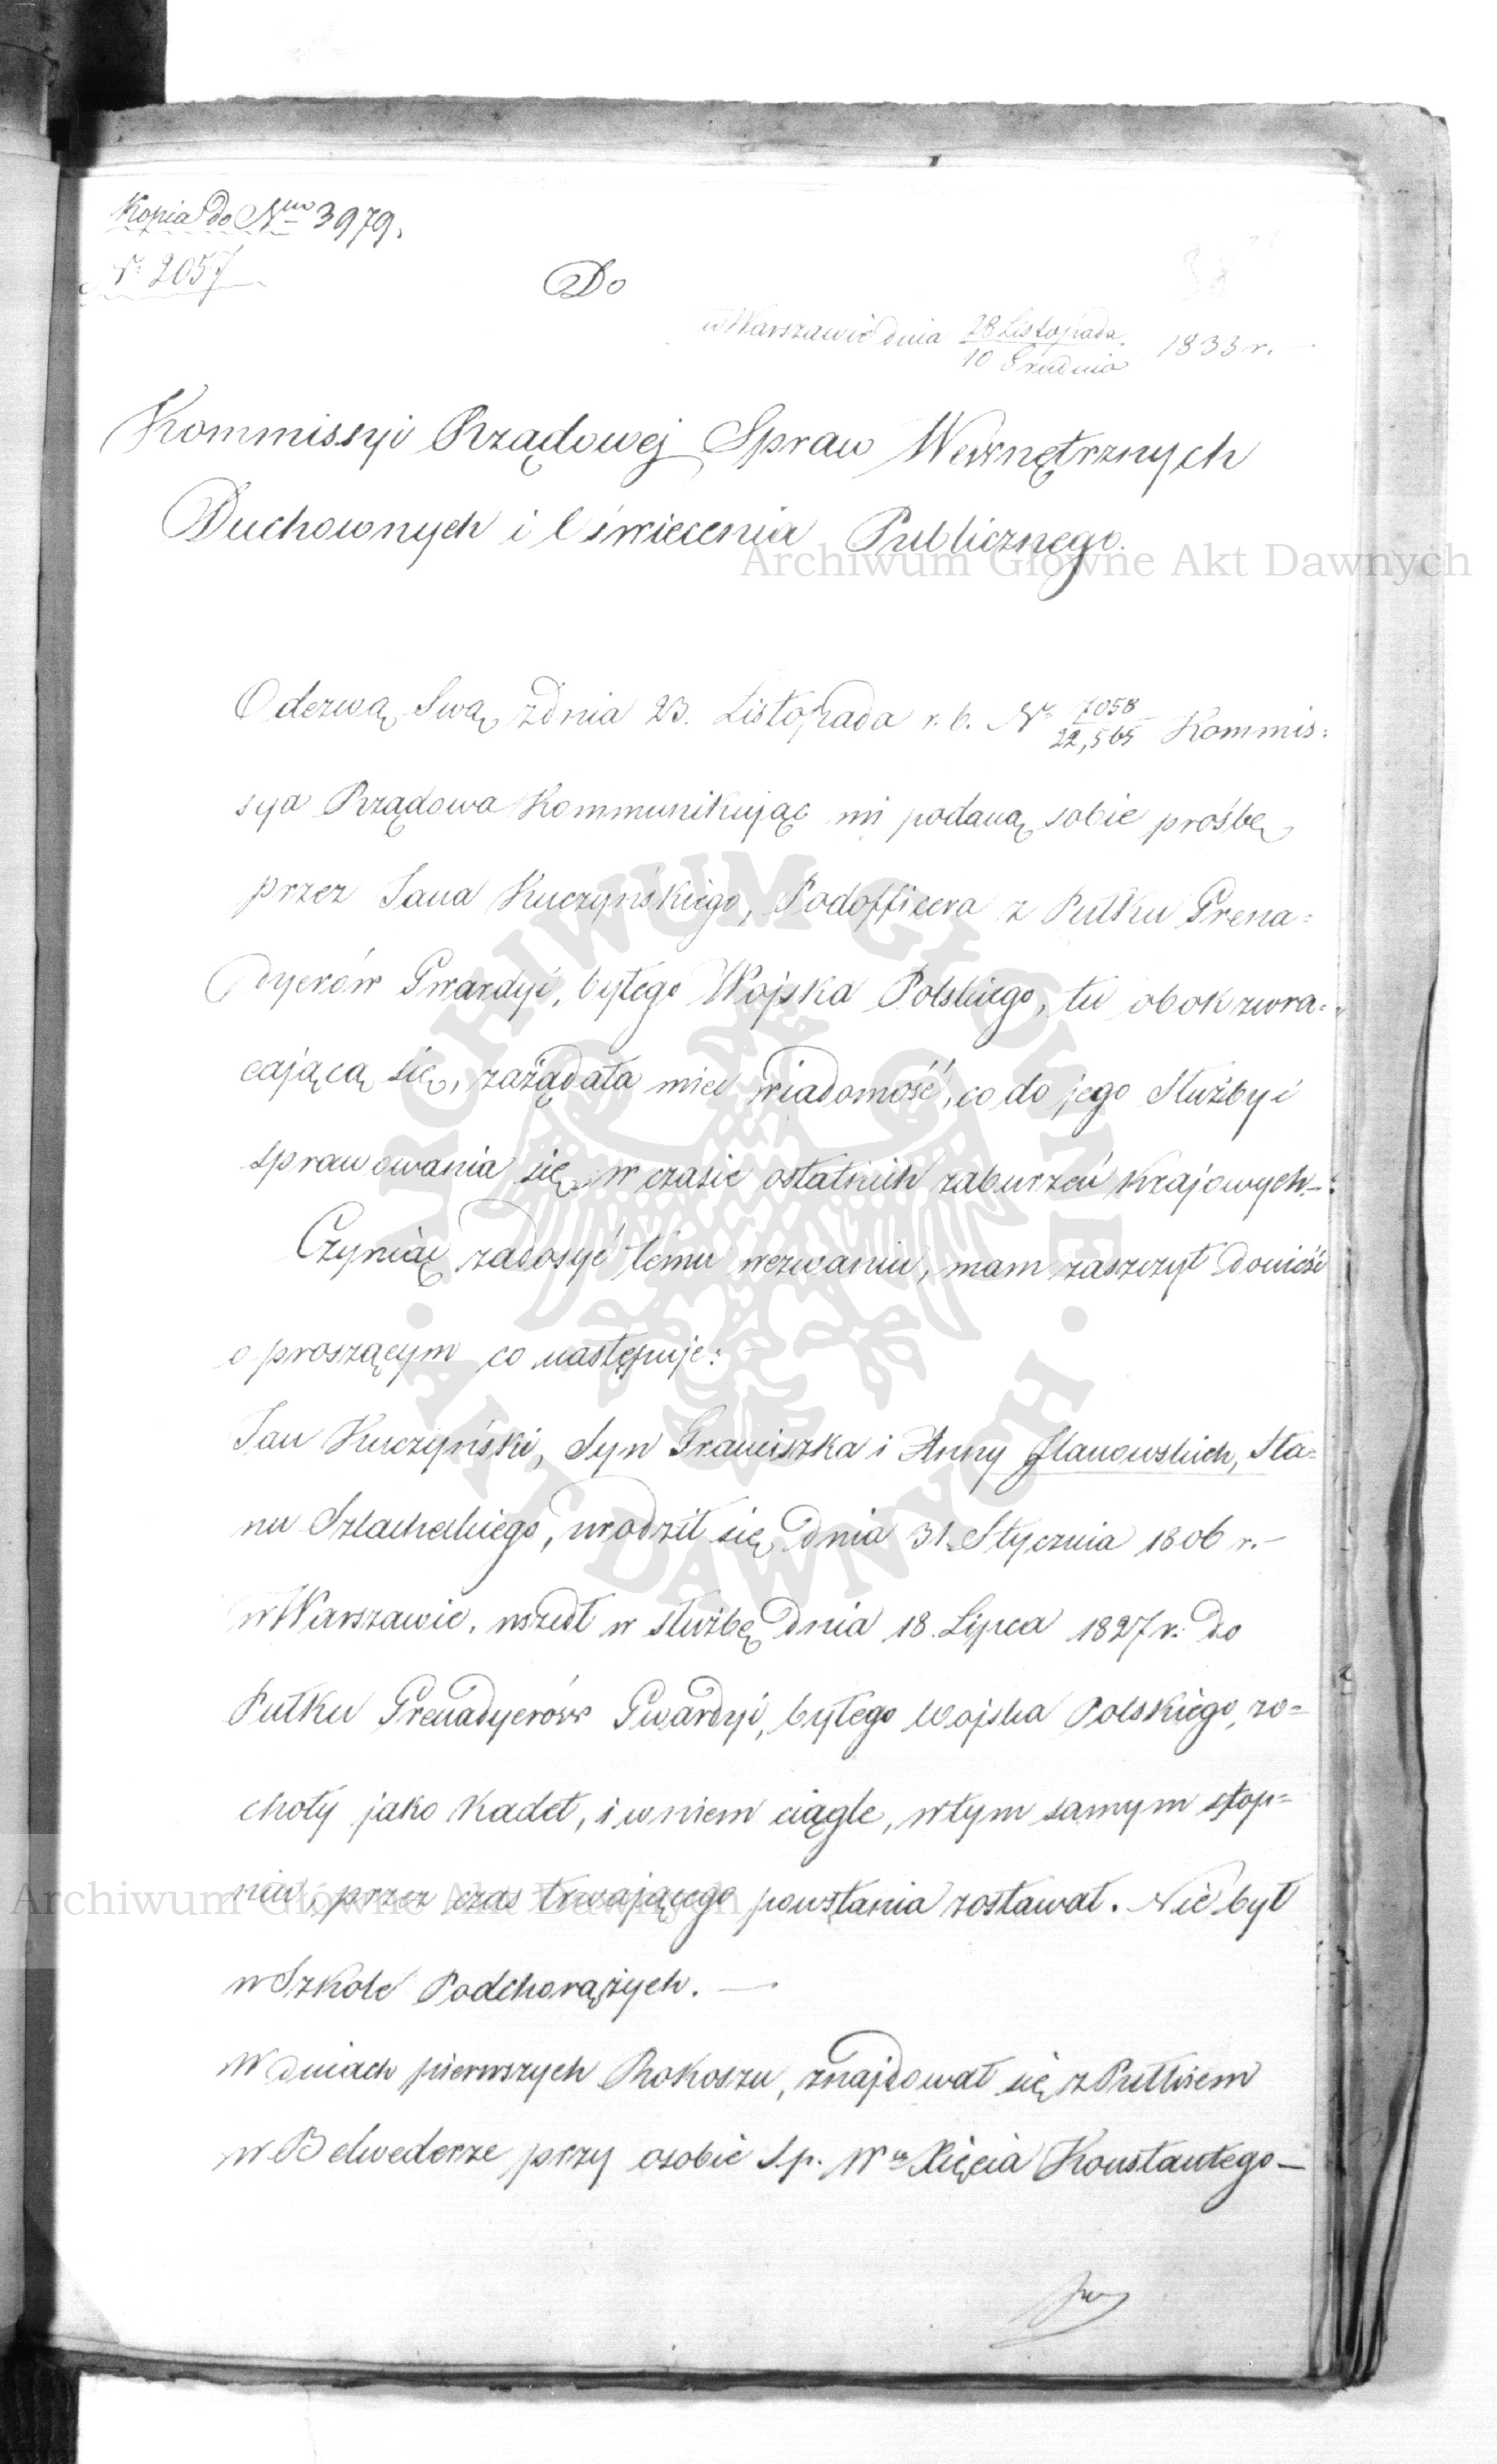 Kopia do Nru 3979.
Nr 2057
Do
w Warszawie dnia 28 Listopada / 10 Grudnia 1833 r.
Kommissyi Rządowej Spraw Wewnętrznych
Duchownych i Oświecenia Publicznego.
Archiwum Główne Akt Dawnych
Odezwą Swą z dnia 23. Listopada r. b. Nr 7058/22,565 Kommis:
sya Rządowa Kommunikując mi podaną sobie prośbę
przez Jana Kuczyńskiego, Podofficera z Pułku Grena=
dyerów Gwardyi, byłego Wojska Polskiego, tu obok zwra=
cającą się, zażądała mieć wiadomość, co do jego Służby i
sprawowania się w czasie ostatnich zaburzeń Krajowych.-
Czyniąc zadosyć temu wezwaniu, mam zaszczyt donieść
o proszącym co następuje:
Jan Kuczyński, Syn Franciszka i Anny, Sta=
nu Szlacheckiego, urodził się dnia 31. Stycznia 1806 r.-
w Warszawie, wszedł w służbę dnia 18. Lipca 1827 r. do
Pułku Grenadyerów Gwardyi, byłego Wojska Polskiego, zo=
choty jako Kadet, i w niem ciągle, w tym samym stop=
niu, przez czas trwającego powstania zostawał. Nie był
Archiwum Główne Akt Dawnych
w Szkole Podchorążych. —
W dniach pierwszych Rokoszu, znajdował się z Pułkiem
w Belwederze przy osobie Sp. Wo Xięcia Konstantego —
ARCHIWUM GŁÓWNE · AKT DAWNYCH ·